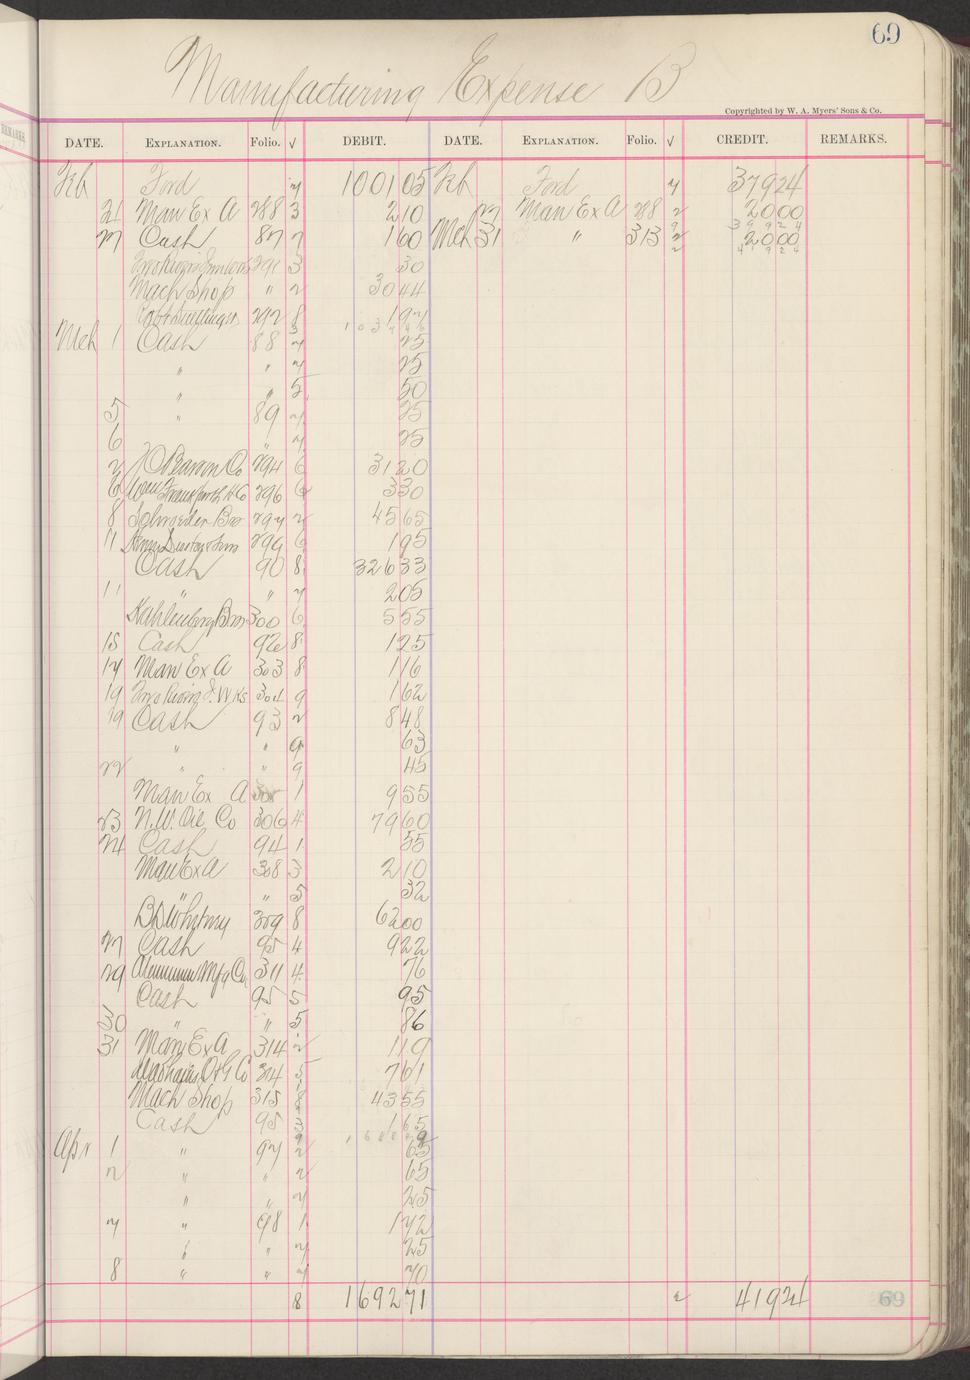 69
Manufacturing Expense B
Copyrighted by W. A. Myers' Sons & Co.
DATE. EXPLANATION. Folio. √ DEBIT. DATE. EXPLANATION. Folio. √ CREDIT. REMARKS.
Feb Ford 7 1001 05 Feb Ford 7 379 24
21 Man Ex A 288 3 2 10 27 Man Ex A 288 2 20 00
27 Cash 87 7 1 60 Mch 31 " 313 2 20 00
399 24
419 24
291 3 30
Mach Shop " 2 30 44
292 8 1 97
Mch 1 Cash 88 7 25
" " 7 25
" " 5 50
5 " 89 7 25
6 " 7 25
2 Co 294 6 31 20
6 296 6 3 30
8 Schroeder Bro 297 2 45 65
11 299 6 1 95
Cash 90 8 326 33
11 " " 7 2 05
Kahlenberg Bros 300 6 5 55
15 Cash 92 8 1 25
17 Man Ex A 303 8 1 16
19 304 9 1 62
19 Cash 93 2 8 48
" " 9 63
22 " " 9 45
Man Ex A 1 9 55
23 N.W. Oil Co 306 4 79 60
24 Cash 94 1 55
Man Ex A 308 3 2 10
" " 5 32
Whitney 309 8 62 00
27 Cash 95 4 9 22
29 Aluminum Mfg Co 311 4 76
Cash 95 5 95
30 " " 5 86
31 Man Ex A 314 2 1 19
Co 314 5 7 61
Mach Shop 315 8 43 55
Cash 95 3 1 65
Apr 1 " 97 2 65
2 " " 2 65
" " 7 25
7 " 98 1 1 72
" " 7 25
8 " " 7 70
8 1692 71 2 419 24
69